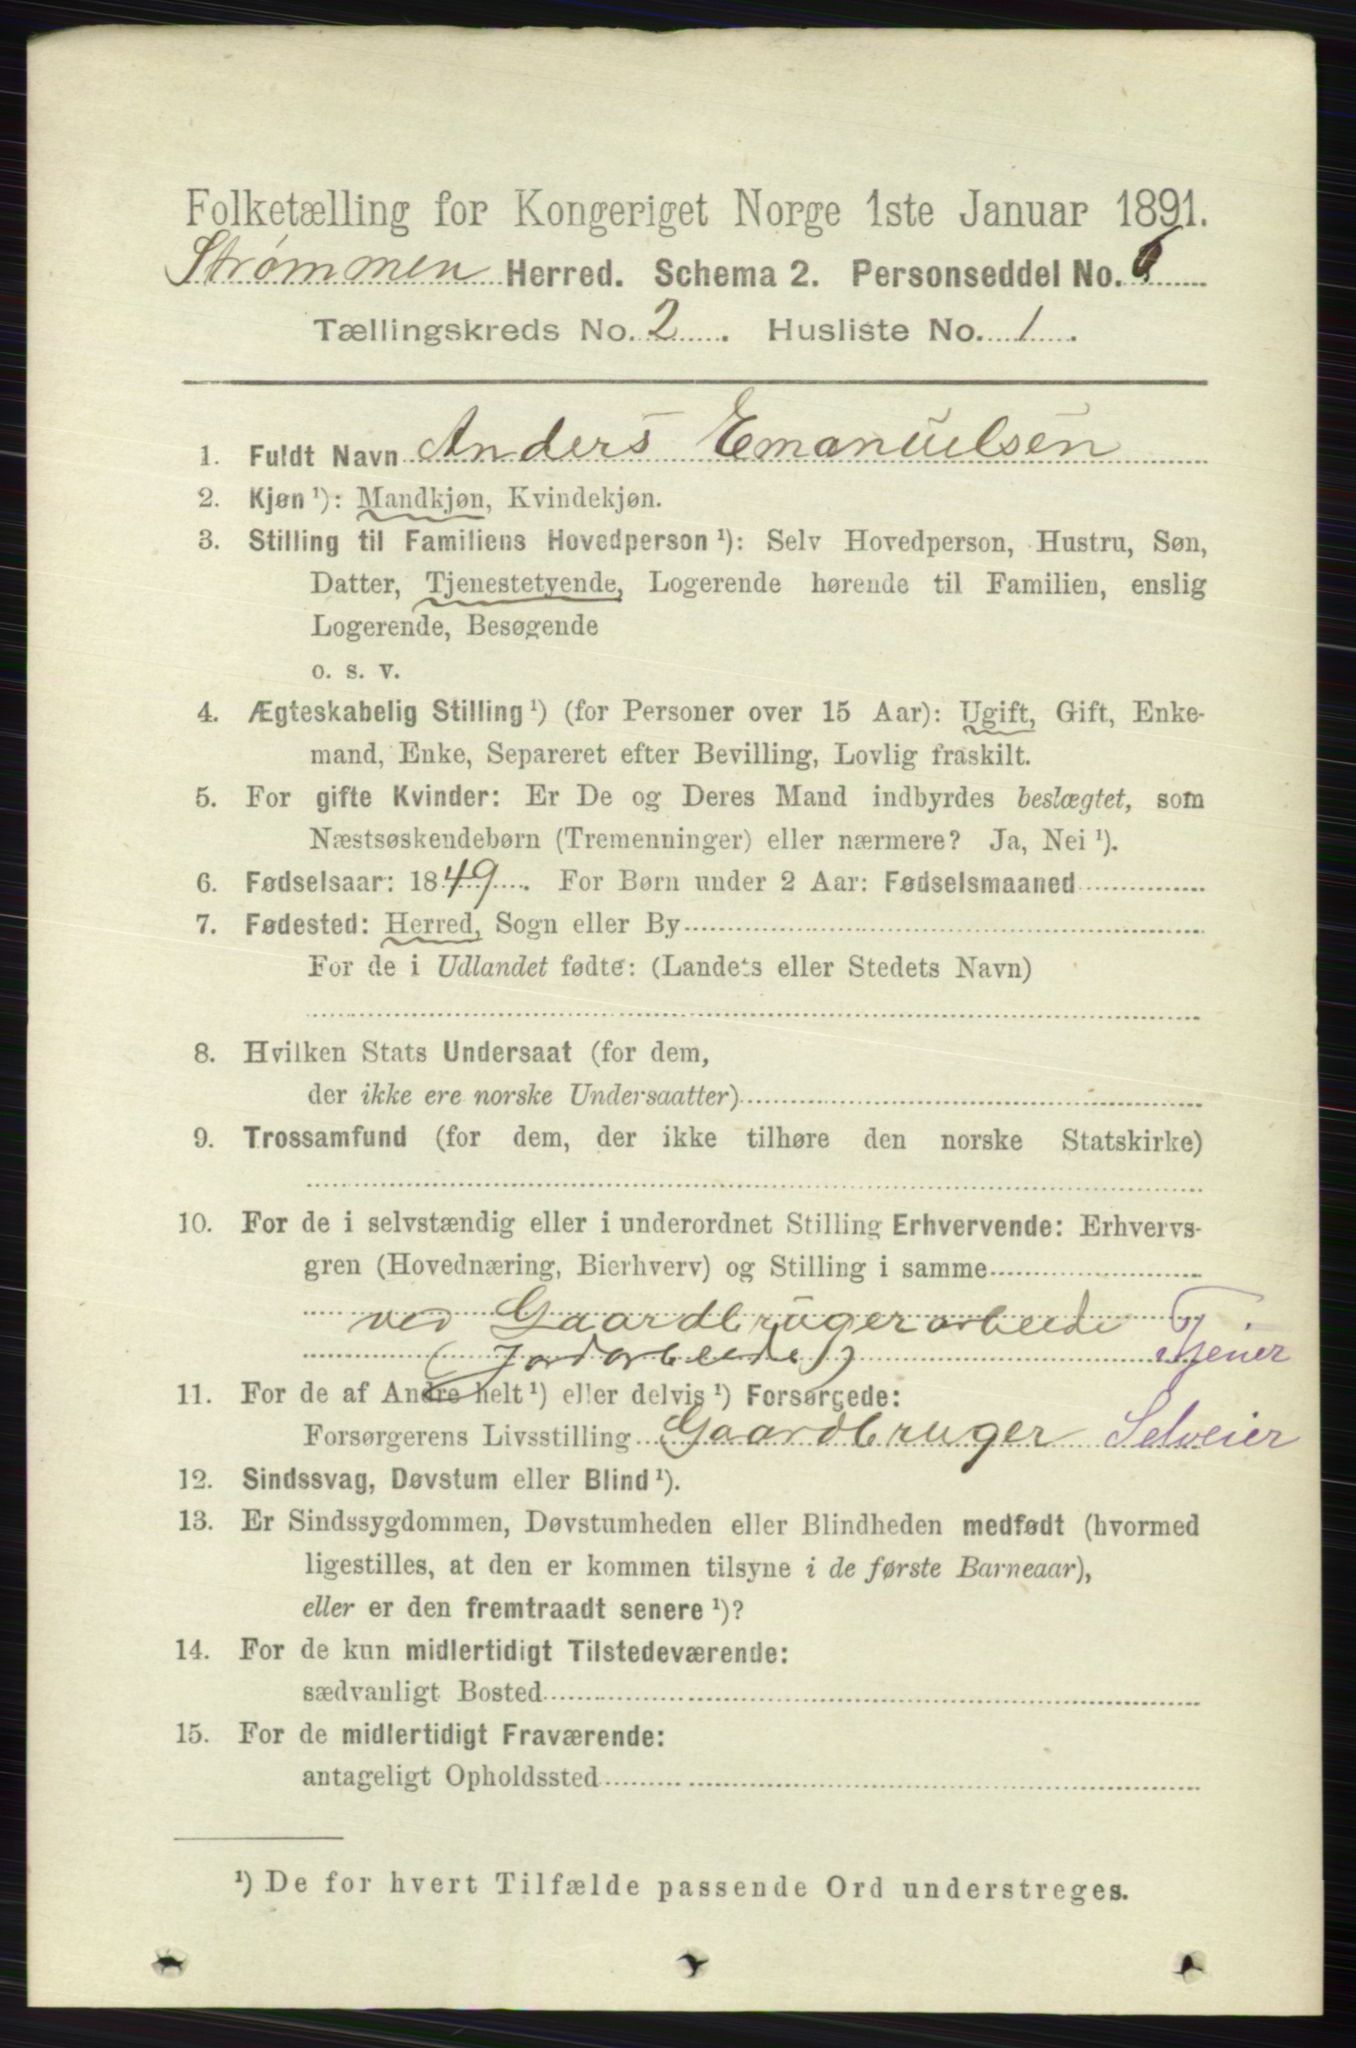 Folketælling for Kongeriget Norge 1ste Januar 1891.
Strømmen Herred. Schema 2. Personseddel No. 6
Tællingskreds No. 2. Husliste No. 1.
1. Fuldt Navn Anders Emanuelsen
2. Kjøn ¹): Mandkjøn, Kvindekjøn.
3. Stilling til Familiens Hovedperson ¹): Selv Hovedperson, Hustru, Søn,
Datter, Tjenestetyende, Logerende hørende til Familien, enslig
Logerende, Besøgende
o. s. v.
4. Ægteskabelig Stilling ¹) (for Personer over 15 Aar): Ugift, Gift, Enke-
mand, Enke, Separeret efter Bevilling, Lovlig fraskilt.
5. For gifte Kvinder: Er De og Deres Mand indbyrdes beslægtet, som
Næstsøskendebørn (Tremenninger) eller nærmere? Ja, Nei ¹).
6. Fødselsaar: 1849. For Børn under 2 Aar: Fødselsmaaned
7. Fødested: Herred, Sogn eller By
For de i Udlandet fødte: (Landets eller Stedets Navn)
8. Hvilken Stats Undersaat (for dem,
der ikke ere norske Undersaatter)
9. Trossamfund (for dem, der ikke tilhøre den norske Statskirke)
10. For de i selvstændig eller i underordnet Stilling Erhvervende: Erhvervs-
gren (Hovednæring, Bierhverv) og Stilling i samme
ved Gaardbrugerarbeide
(Jordarbeide) Tjener
11. For de af Andre helt ¹) eller delvis ¹) Forsørgede:
Forsørgerens Livsstilling Gaardbruger Selveier
12. Sindssvag, Døvstum eller Blind ¹).
13. Er Sindssygdommen, Døvstumheden eller Blindheden medfødt (hvormed
ligestilles, at den er kommen tilsyne i de første Barneaar),
eller er den fremtraadt senere ¹)?
14. For de kun midlertidigt Tilstedeværende:
sædvanligt Bosted
15. For de midlertidigt Fraværende:
antageligt Opholdssted
¹) De for hvert Tilfælde passende Ord understreges.